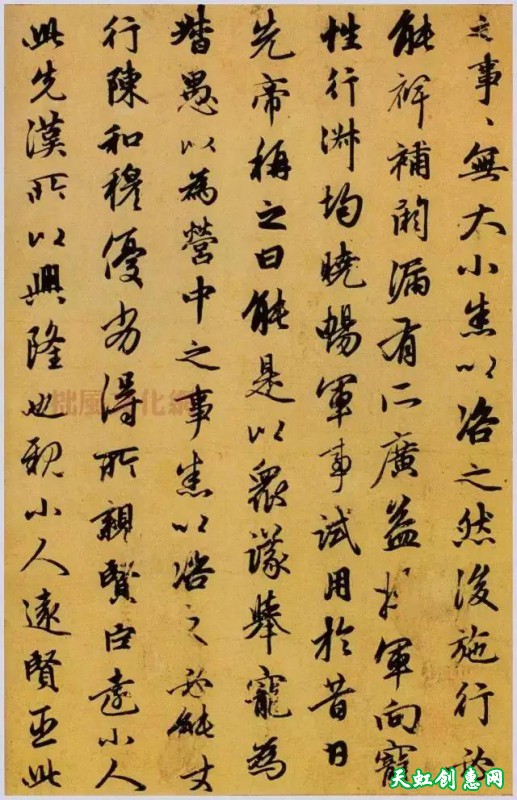 之事〻無大小悉以咨之然後施行必
能裨補闕漏有所廣益将軍向寵
性行淑均曉暢軍事試用於昔日
先帝稱之曰能是以衆議舉寵為
督愚以為營中之事悉以咨之必能使
行陳和穆優劣得所親賢臣遠小人
此先漢所以興隆也親小人遠賢臣此
拙風文化網
天虹创惠网